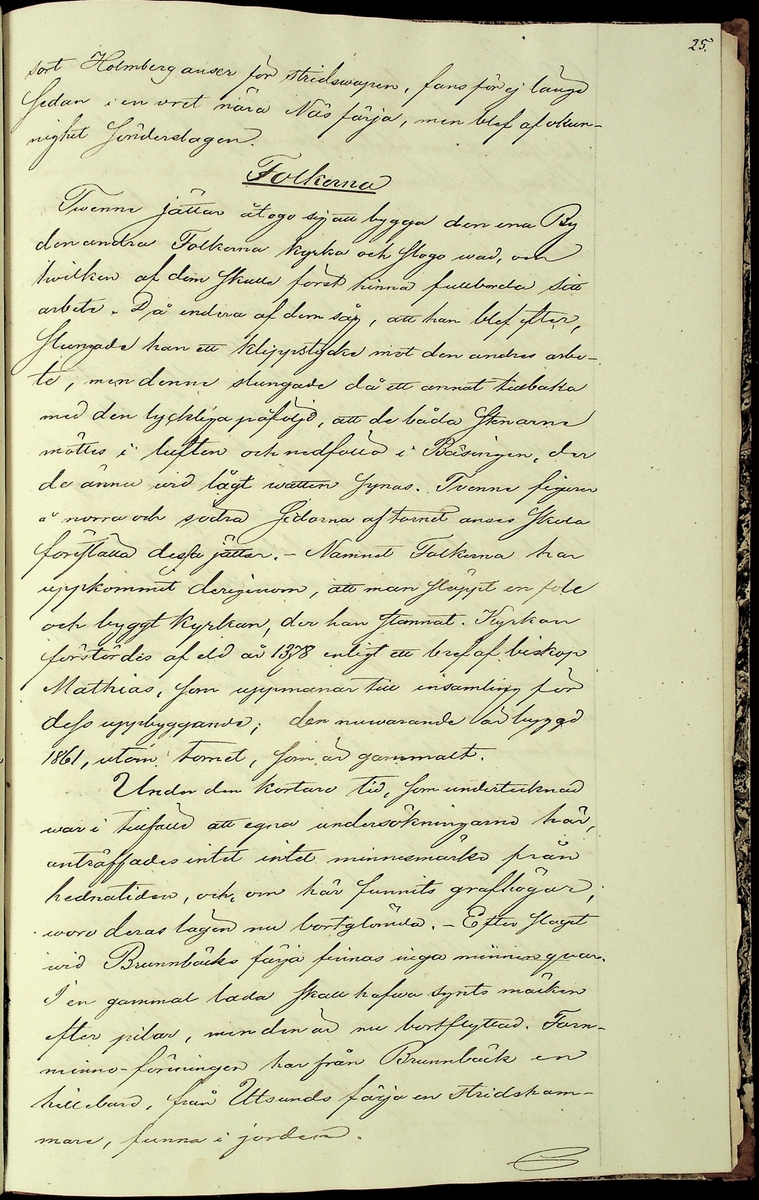 25.
sort Holmberg anser för stridswapen, fans för ej länge
sedan i en vret nära Näs färja, men blef af okun-
nighet sönderslagen.
Folkerna
Twenne jättar åtogo sig att bygga den ena By
den andra Folkerna kyrka och slogo wad, om
hwilken af dem skulle först hinna fullborda sitt
arbete. Då endera af dem såg, att han blef efter,
slungade han ett klippstycke mot den andres arbe-
te, men denne slungade då ett annat tillbaka
med den lyckliga påföljd, att de båda stenarne
möttes i luften och nedföllo i Bäsingen, der
de ännu wid lågt watten synas. Tvenne figurer
å norra och södra sidorna af tornet anses skola
föreställa dessa jättar. – Namnet Folkerna har
uppkommit derigenom, att man släppt en fole
och byggt kyrkan, der han stannat. Kyrkan
förstördes af eld år 1378 enligt ett bref af biskop
Mathias, som uppmanar till insamling för
dess uppbyggande; den nuwarande är byggd
1861, utom tornet, som är gammalt.
Under den kortare tid, som undertecknad
war i tillfälle att egna undersökningarne här,
anträffades intet intet minnesmärke från
hednatiden, och, om här funnits grafhögar,
woro deras lägen nu bortglömda. – Efter slaget
wid Brunnbäcks färja finnas inga minnen qwar.
I en gammal lada skall hafwa synts märken
efter pilar, men den är nu bortflyttad. Forn-
minne-föreningen har från Brunnbäck en
hillebard, från Utsunds färja en stridsham-
mare, funna i jorden.